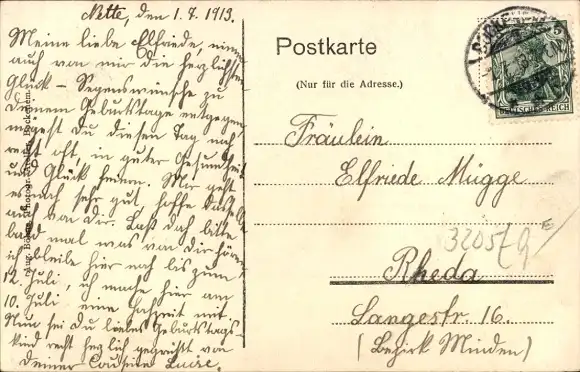 Nette, den 1.7.1913.
Meine liebe Elfriede, nimm
auch von mir die herzlichsten
Glück- Segenswünsche zu
Deinem Geburtstage entgegen,
mögest Du diesen Tag noch
recht oft, in guter Gesundheit
und Glück feiern. Mir geht
es noch sehr gut, hoffe dasselbe
auch von Dir. Laß doch bitte
bald mal was von Dir hören
ich bleibe hier noch bis zum
12. Juli, ich mache hier am
10. Juli eine mit.
Nun sei Du liebes Geburtstags-
kind recht herzlich gegrüßt von
Deiner Cousine Luise.
Postkarte
(Nur für die Adresse.)
5
DEUTSCHES REICH
Fräulein
Elfriede Mügge
Rheda
Langestr. 16.
(Bezirk Minden)